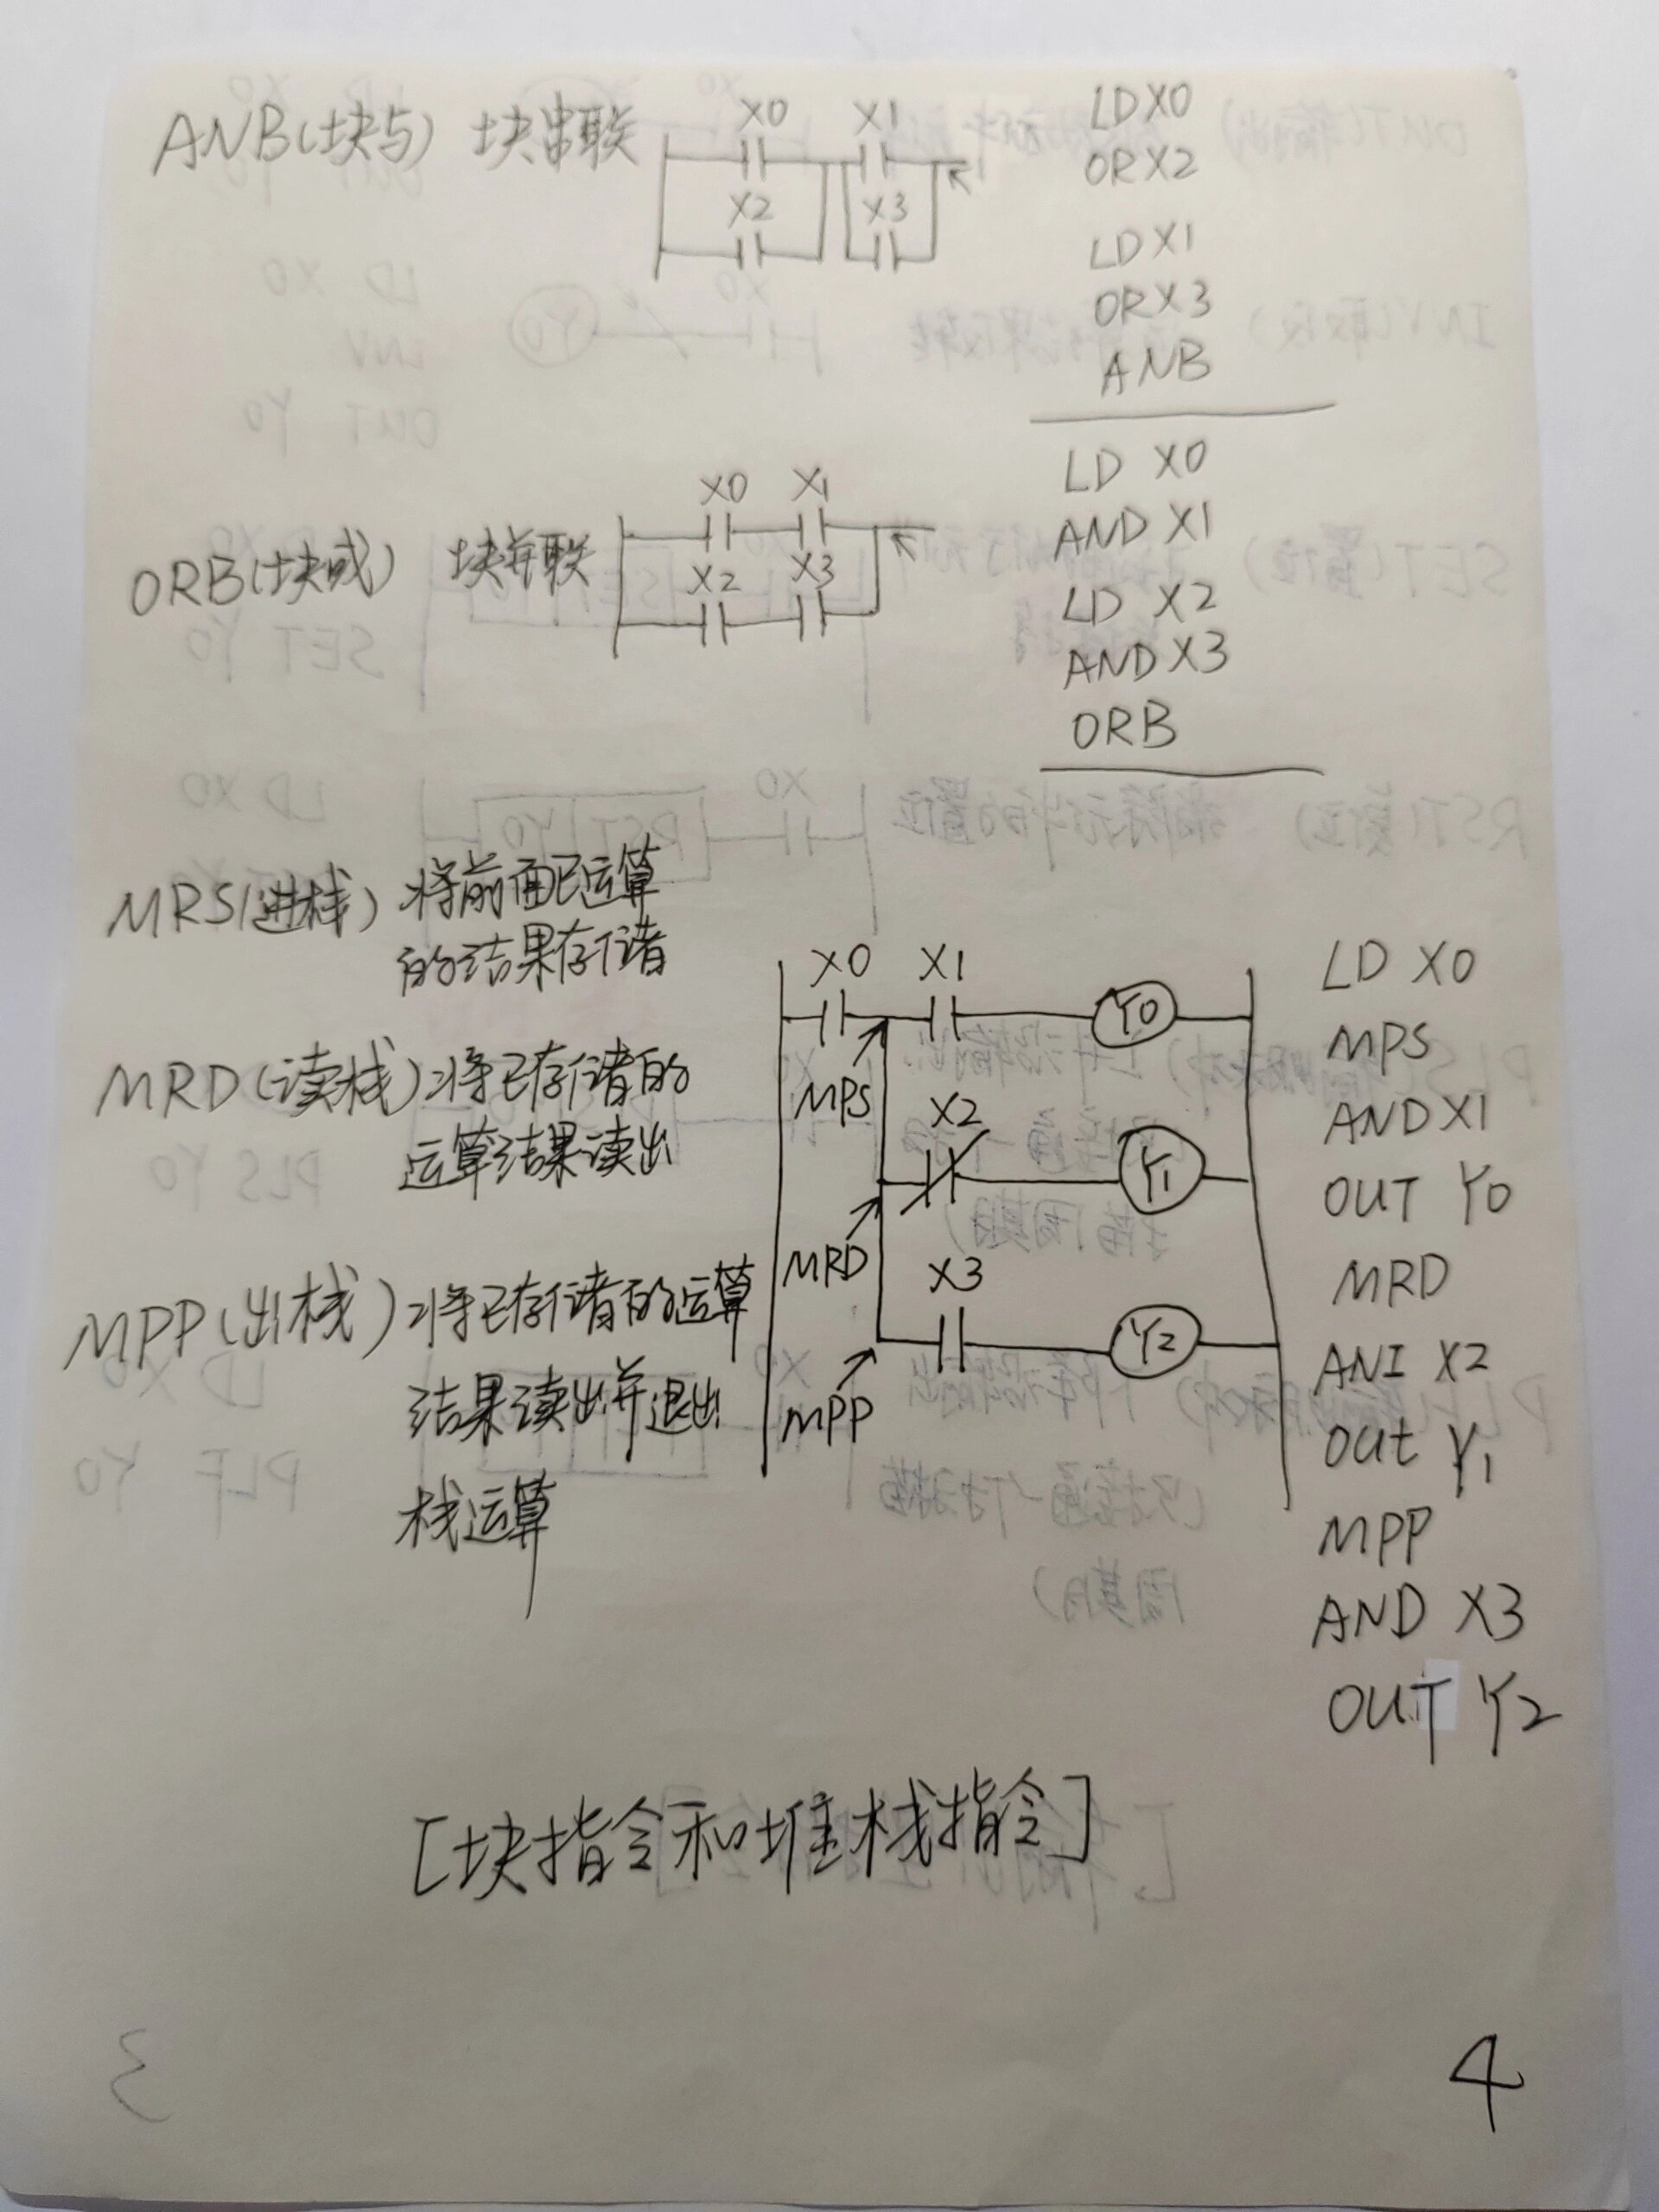 ANB(块与) 块串联
X0 X1
X2 X3
LD X0
OR X2
LD X1
OR X3
ANB
ORB(块或) 块并联
X0 X1
X2 X3
LD X0
AND X1
LD X2
AND X3
ORB
MRS(进栈) 将前面已运算
的结果存储
MRD(读栈) 将已存储的
运算结果读出
MPP(出栈) 将已存储的运算
结果读出并退出
栈运算
X0 X1 Y0
MPS
X2 Y1
MRD
X3 Y2
MPP
LD X0
MPS
AND X1
OUT Y0
MRD
ANI X2
OUt Y1
MPP
AND X3
OUT Y2
[块指令和堆栈指令]
4